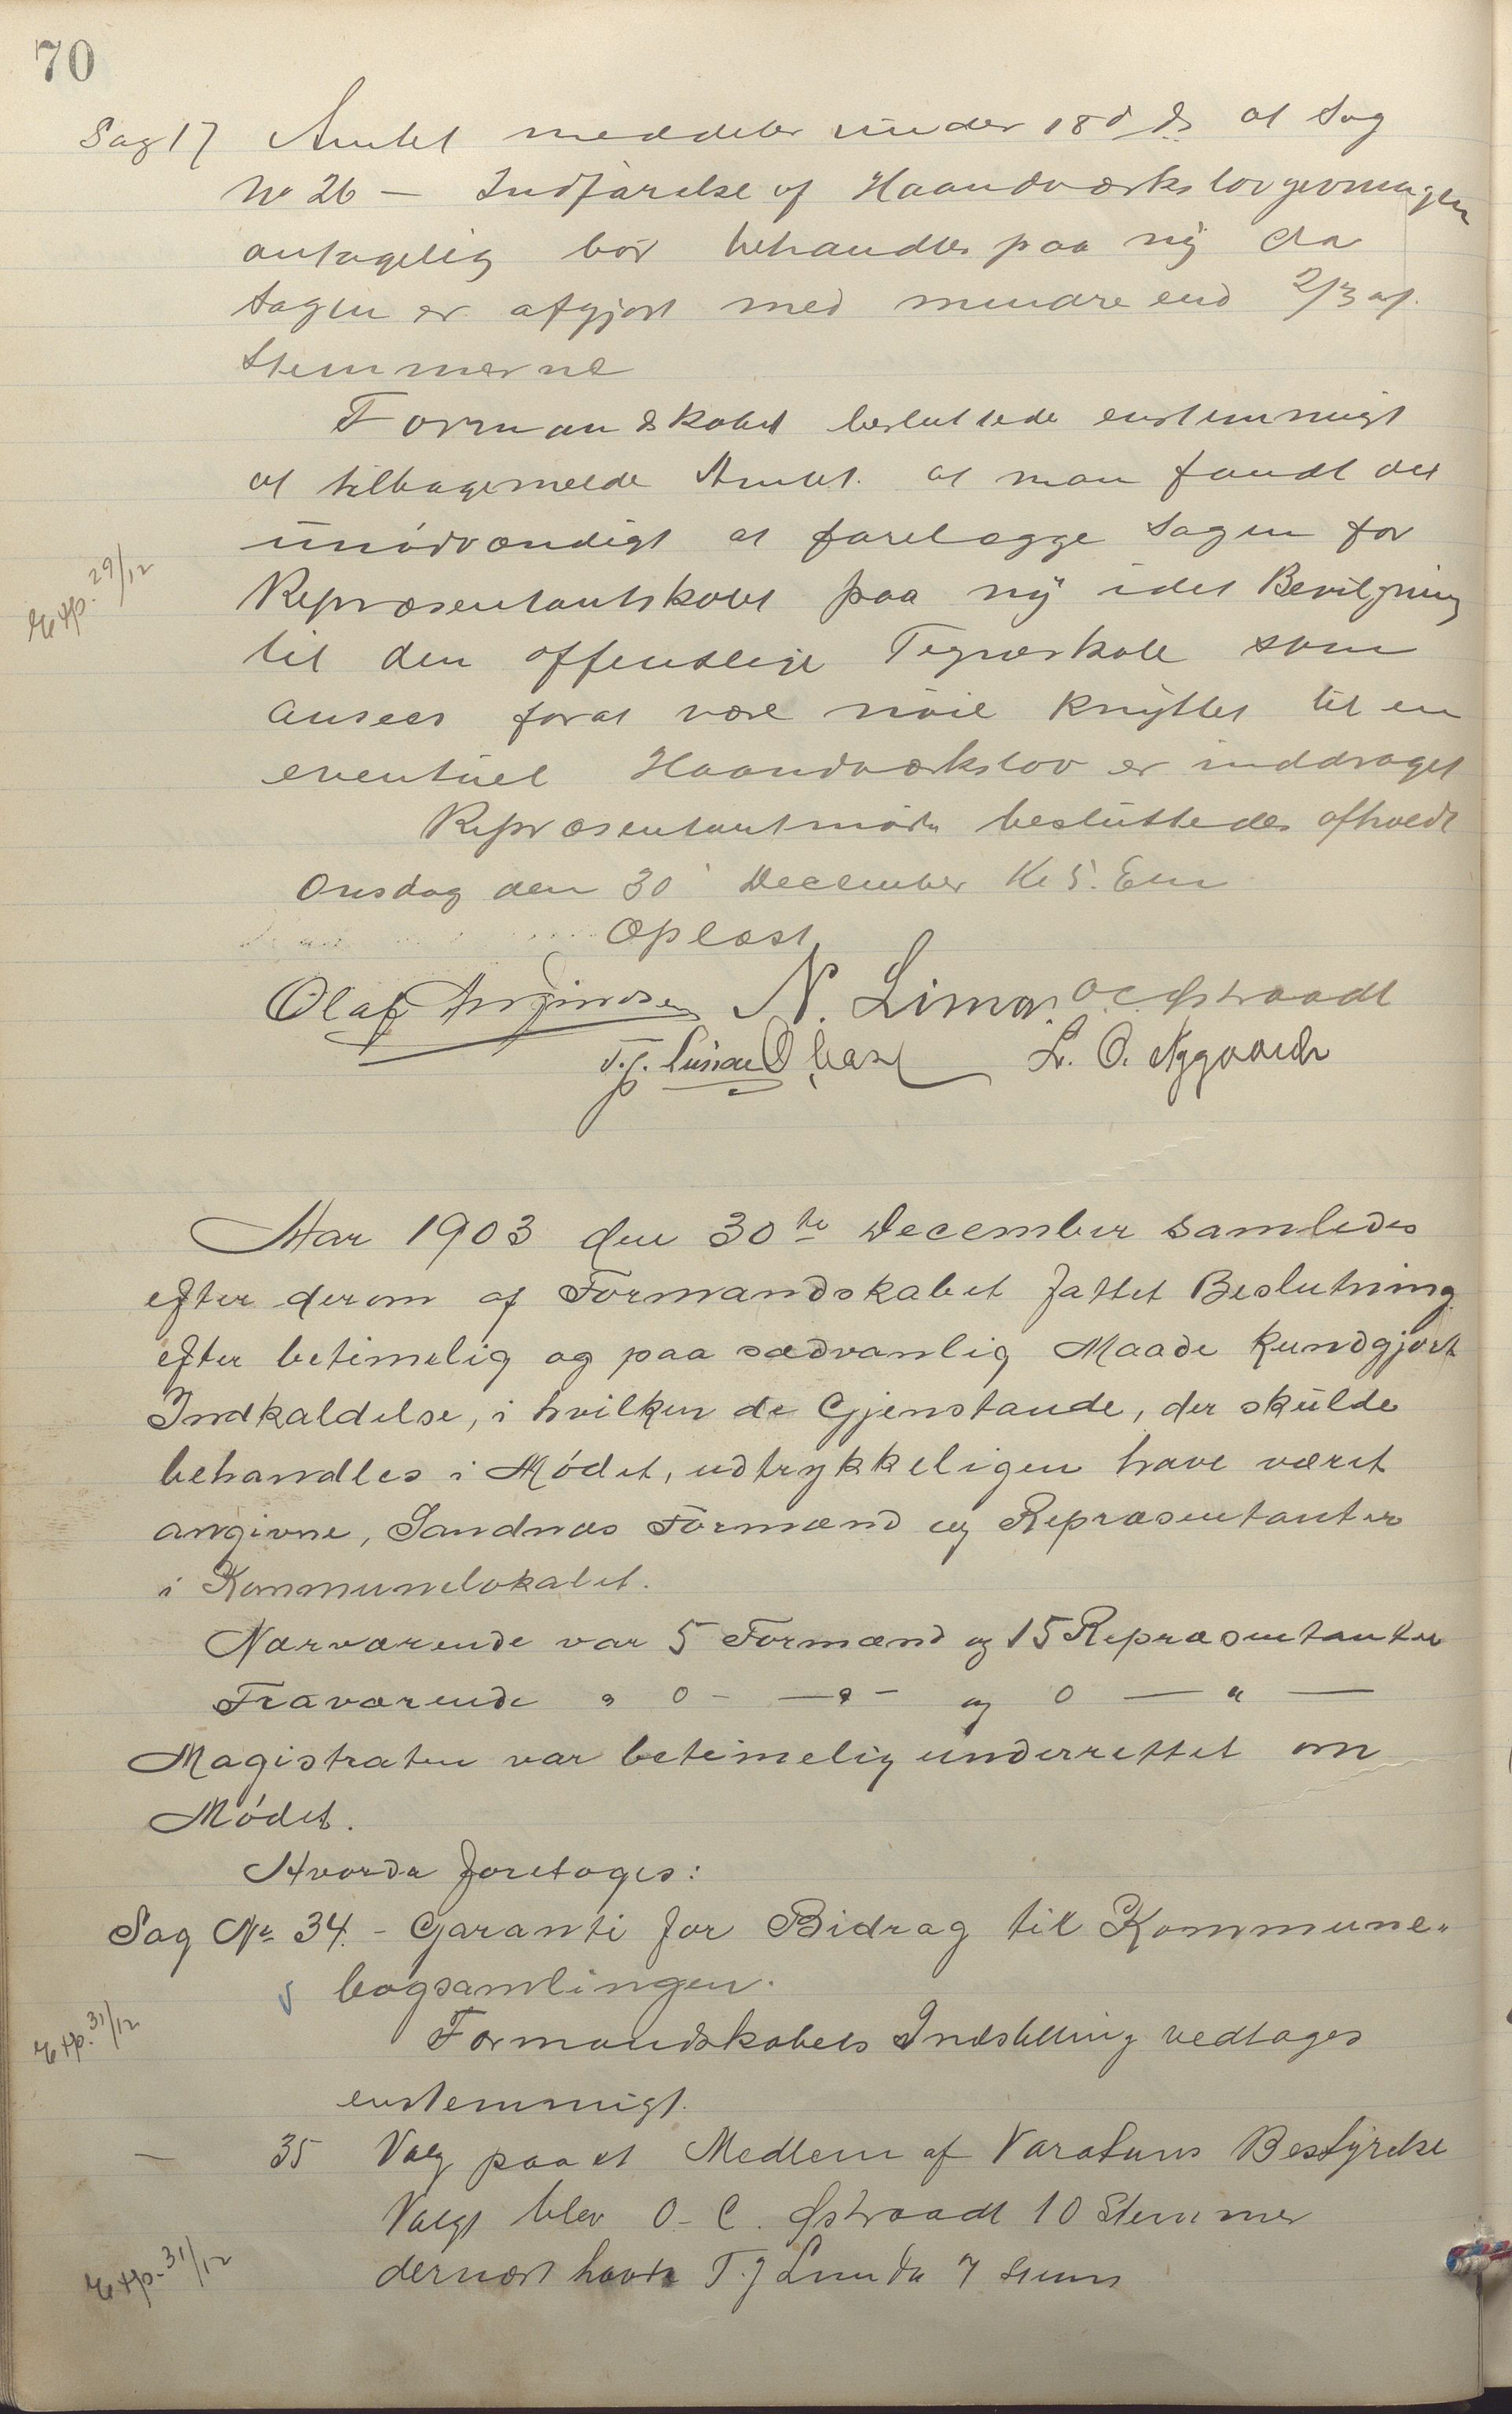 70
Sag 17 Amtet meddeler under 18 d ds at Sag
No 26 — Indførelse af Haandværkslovgivningen
antagelig bør behandles paa ny da
Sagen er afgjort med mindre end 2/3 af
Stemmerne
Formandskabet besluttede enstemmigt
at tilbagemelde Amtet at man fandt det
unødvændigt at forelægge Sagen for
Exp. 29/12
Repræsentantskabet paa ny idet Bevilgning
til den offentlige Tegneskole som
ansees forat være nøie knyttet til en
eventuel Haandværkslov er inddraget
Repræsentantmøde besluttedes afholdt
Onsdag den 30 December Kl 5. Em
Oplæst
Olaf N. Lima. O C Østraadt
T. J. Lunde L. O. Aggaard
Aar 1903 den 30te December samledes
efter derom af Formandskabet fattet Beslutning
efter betimelig og paa sædvanlig Maade kundgjort
Indkaldelse, i hvilken de Gjenstande, der skulde
behandles i Mødet, udtrykkeligen have været
angivne, Sandnæs Formænd og Repræsentanter
i Kommunelokalet.
Nærværende var 5 Formænd og 15 Repræsentanter
Fraværende " 0 - — " — og 0 — " —
Magistraten var betimelig underrettet om
Mødet.
Hvorda foretoges:
Sag No 34. - Garanti for Bidrag til Kommune-
bogsamlingen.
Exp. 31/12
Formandskabets Indstilling vedtages
enstemmigt.
— 35 Valg paa et Medlem af Varatuns Bestyrelse
Valgt blev O. C. Østraadt 10 Stemmer
Exp. 31/12
dernæst havde T. J Lunde 7 Stem